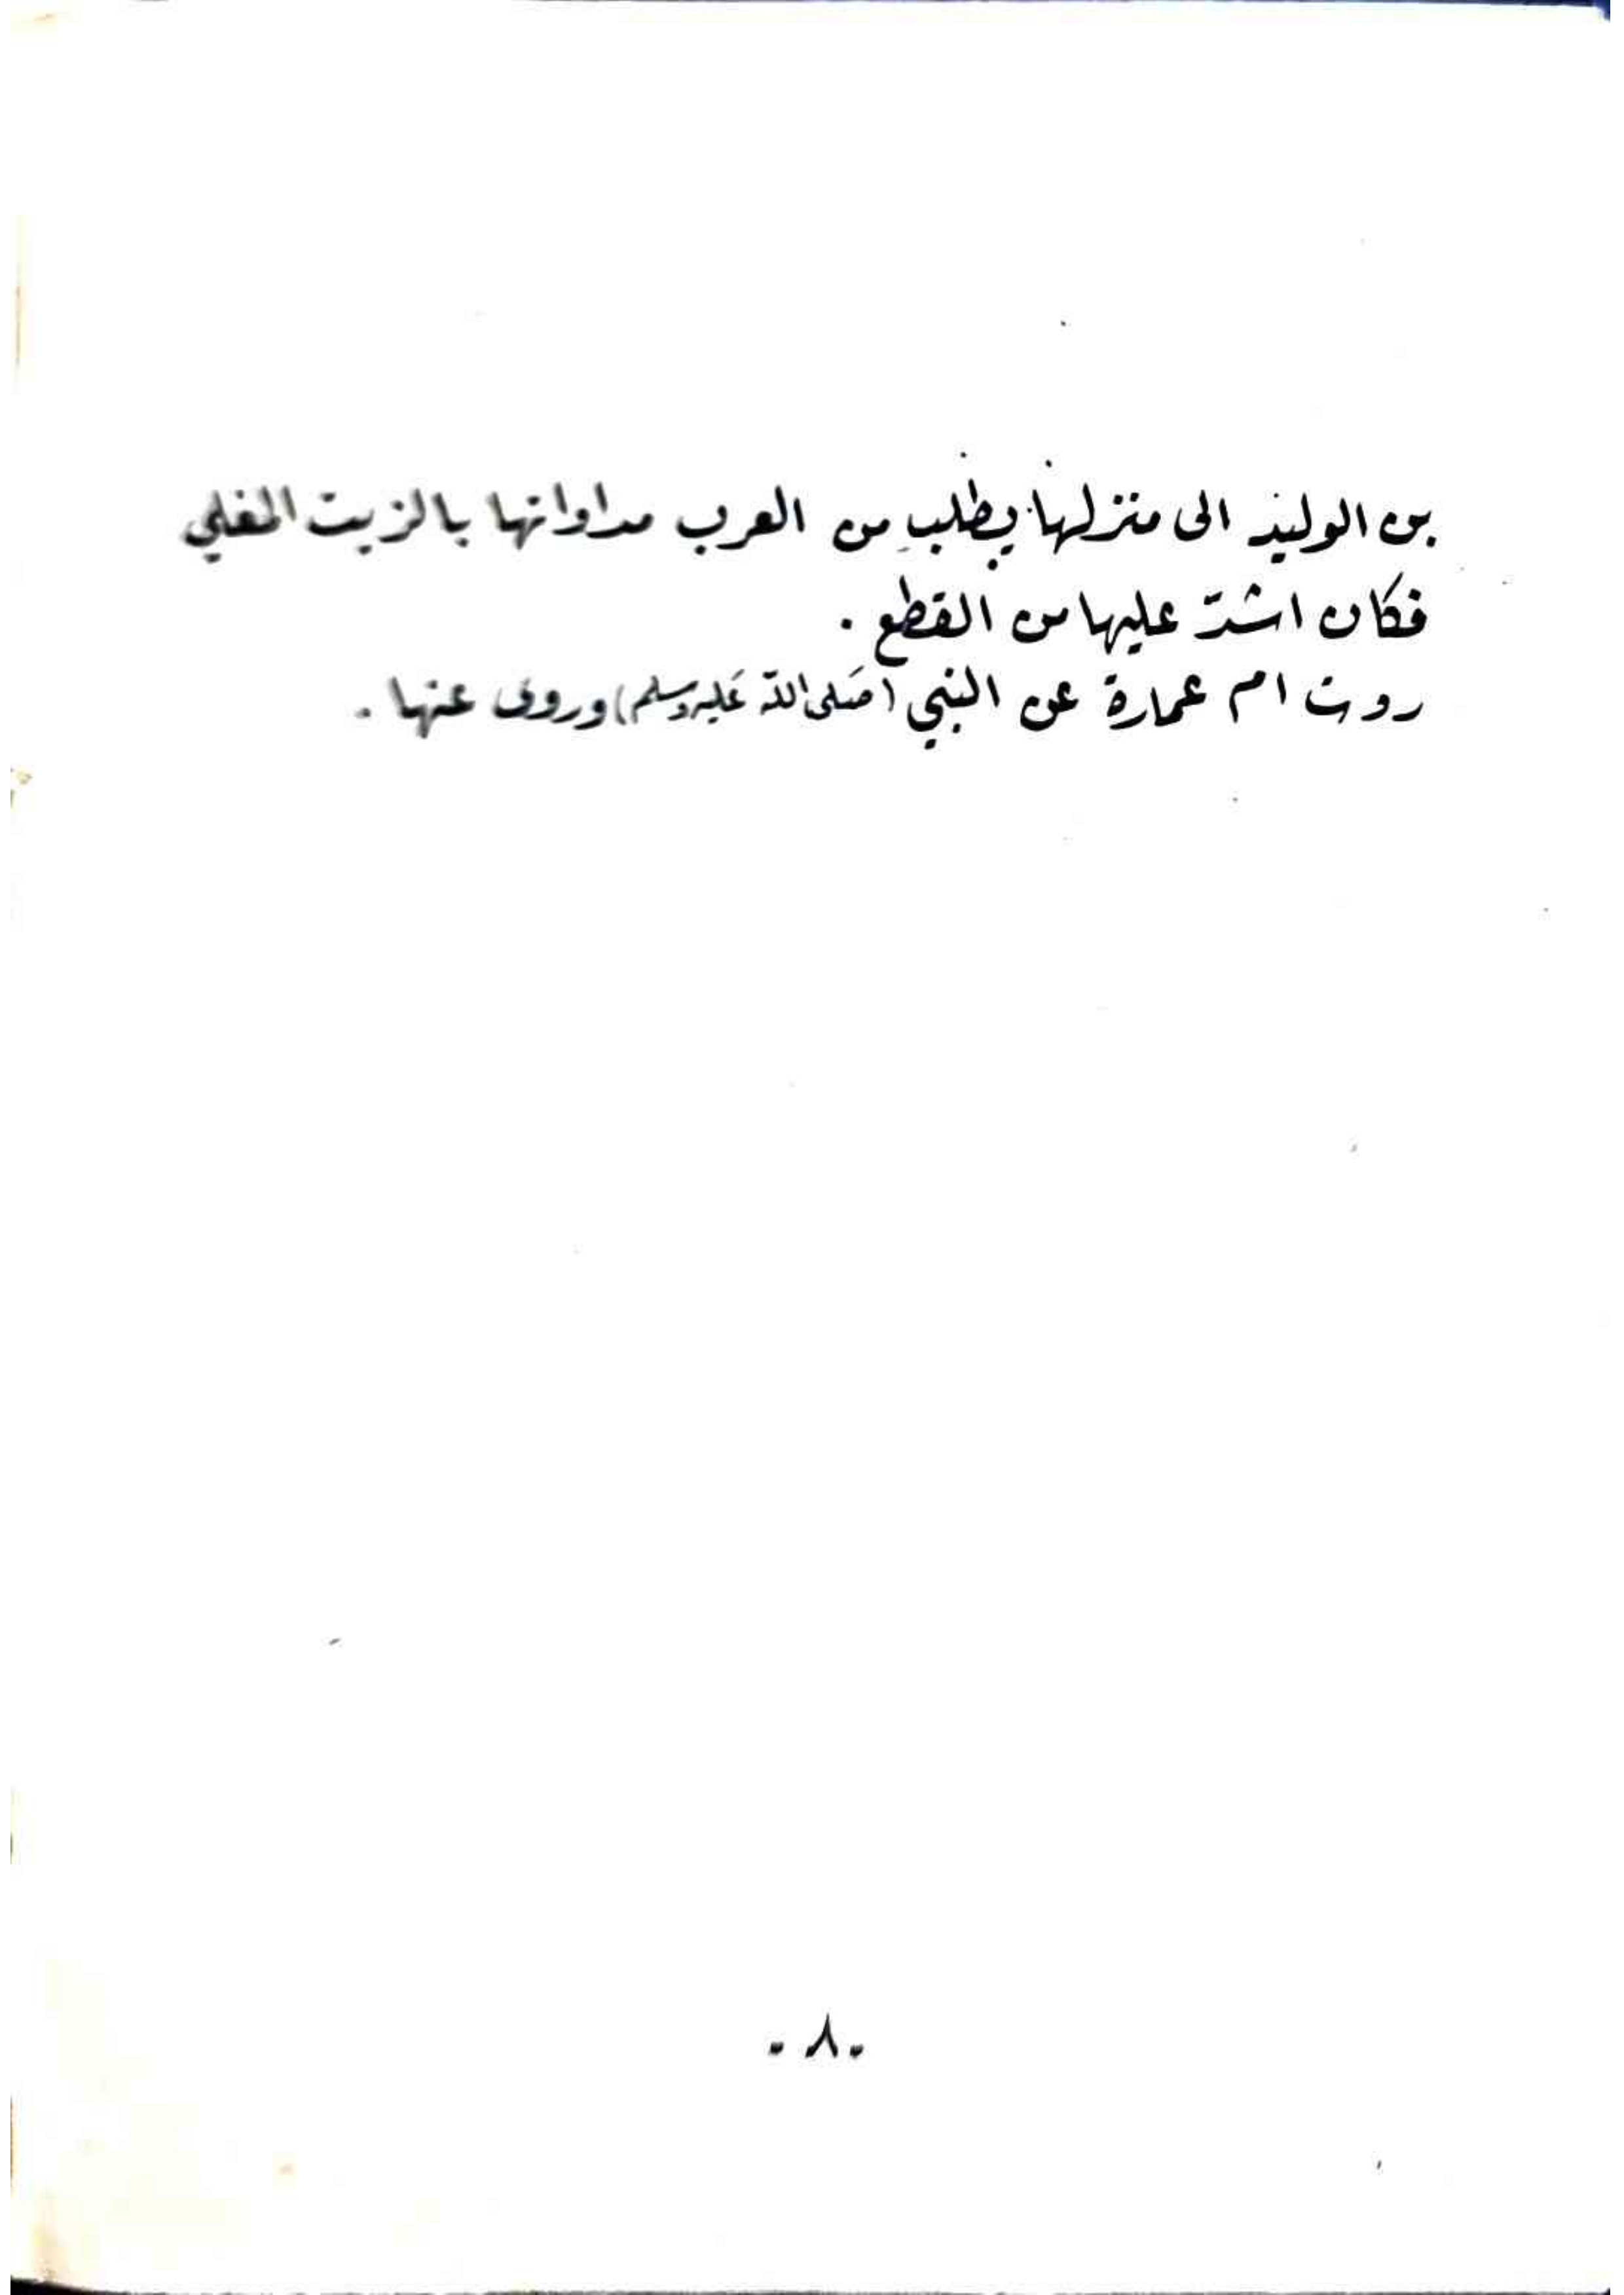 بن الوليد الى منزلها يطلب من العرب مداواتها بالزيت المغلي
فكان اشدّ عليها من القطع .
روت ام عمارة عن النبي (صَلى اللّه عَليه وسلم) وروى عنها .
- ٨ -